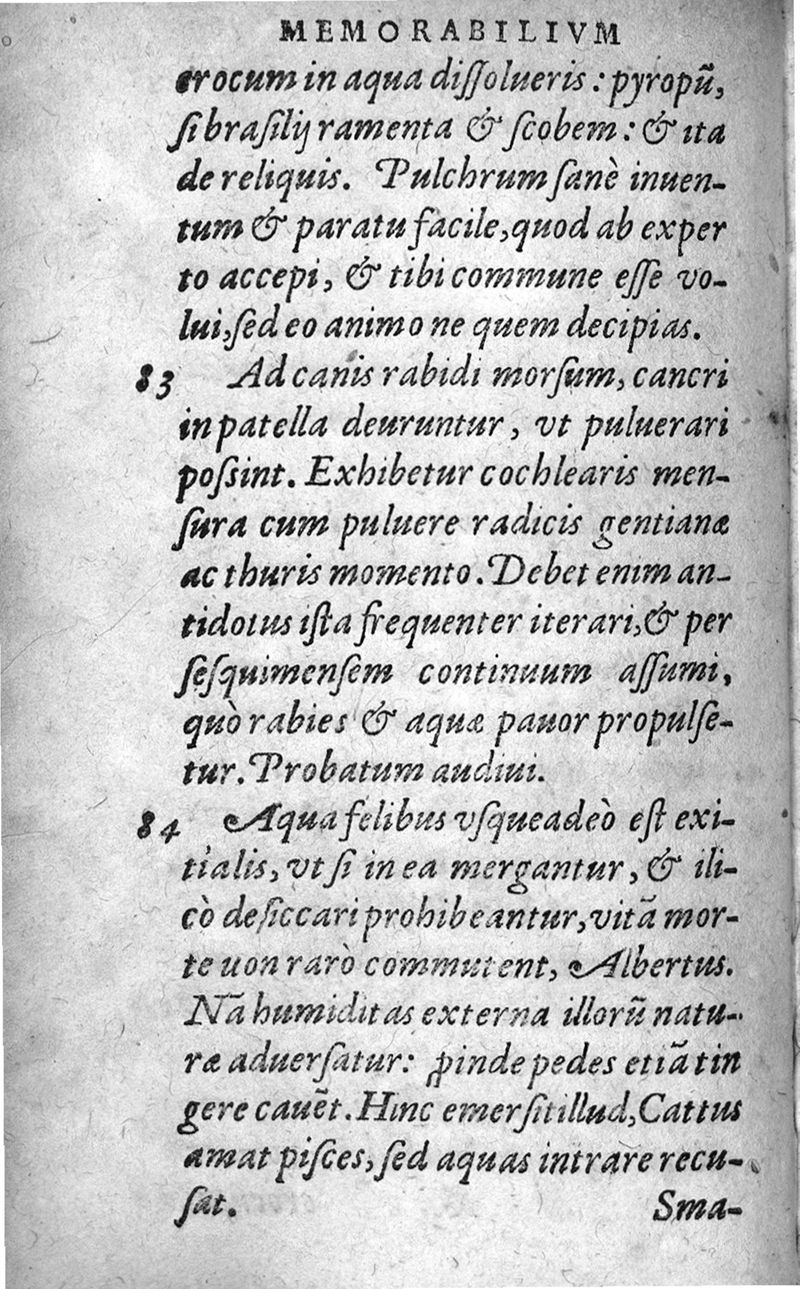 MEMORABILIVM
crocum in aqua dissolueris: pyropū,
si brasilij ramenta & scobem: & ita
de reliquis. Pulchrum sanè inuen-
tum & paratu facile, quod ab exper
to accepi, & tibi commune esse vo-
lui, sed eo animo ne quem decipias.
83 Ad canis rabidi morsum, cancri
in patella deuruntur, vt puluerari
possint. Exhibetur cochlearis men-
sura cum puluere radicis gentianæ
ac thuris momento. Debet enim an-
tidotus ista frequenter iterari, & per
sesquimensem continuum assumi,
quò rabies & aquæ pauor propulse-
tur. Probatum audiui.
84 Aqua felibus vsqueadeò est exi-
tialis, vt si in ea mergantur, & ili-
cò desiccari prohibeantur, vitā mor-
te uon rarò commutent, Albertus.
Nā humiditas externa illorū natu-
ræ aduersatur: ꝓinde pedes etiā tin
gere cauēt. Hinc emersit illud, Cattus
amat pisces, sed aquas intrare recu-
sat.
Sma-